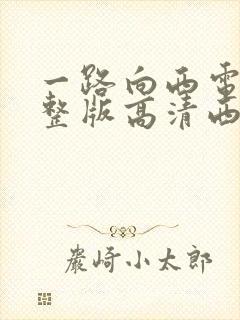 一路向西电
整版高清西
严崎小太郎